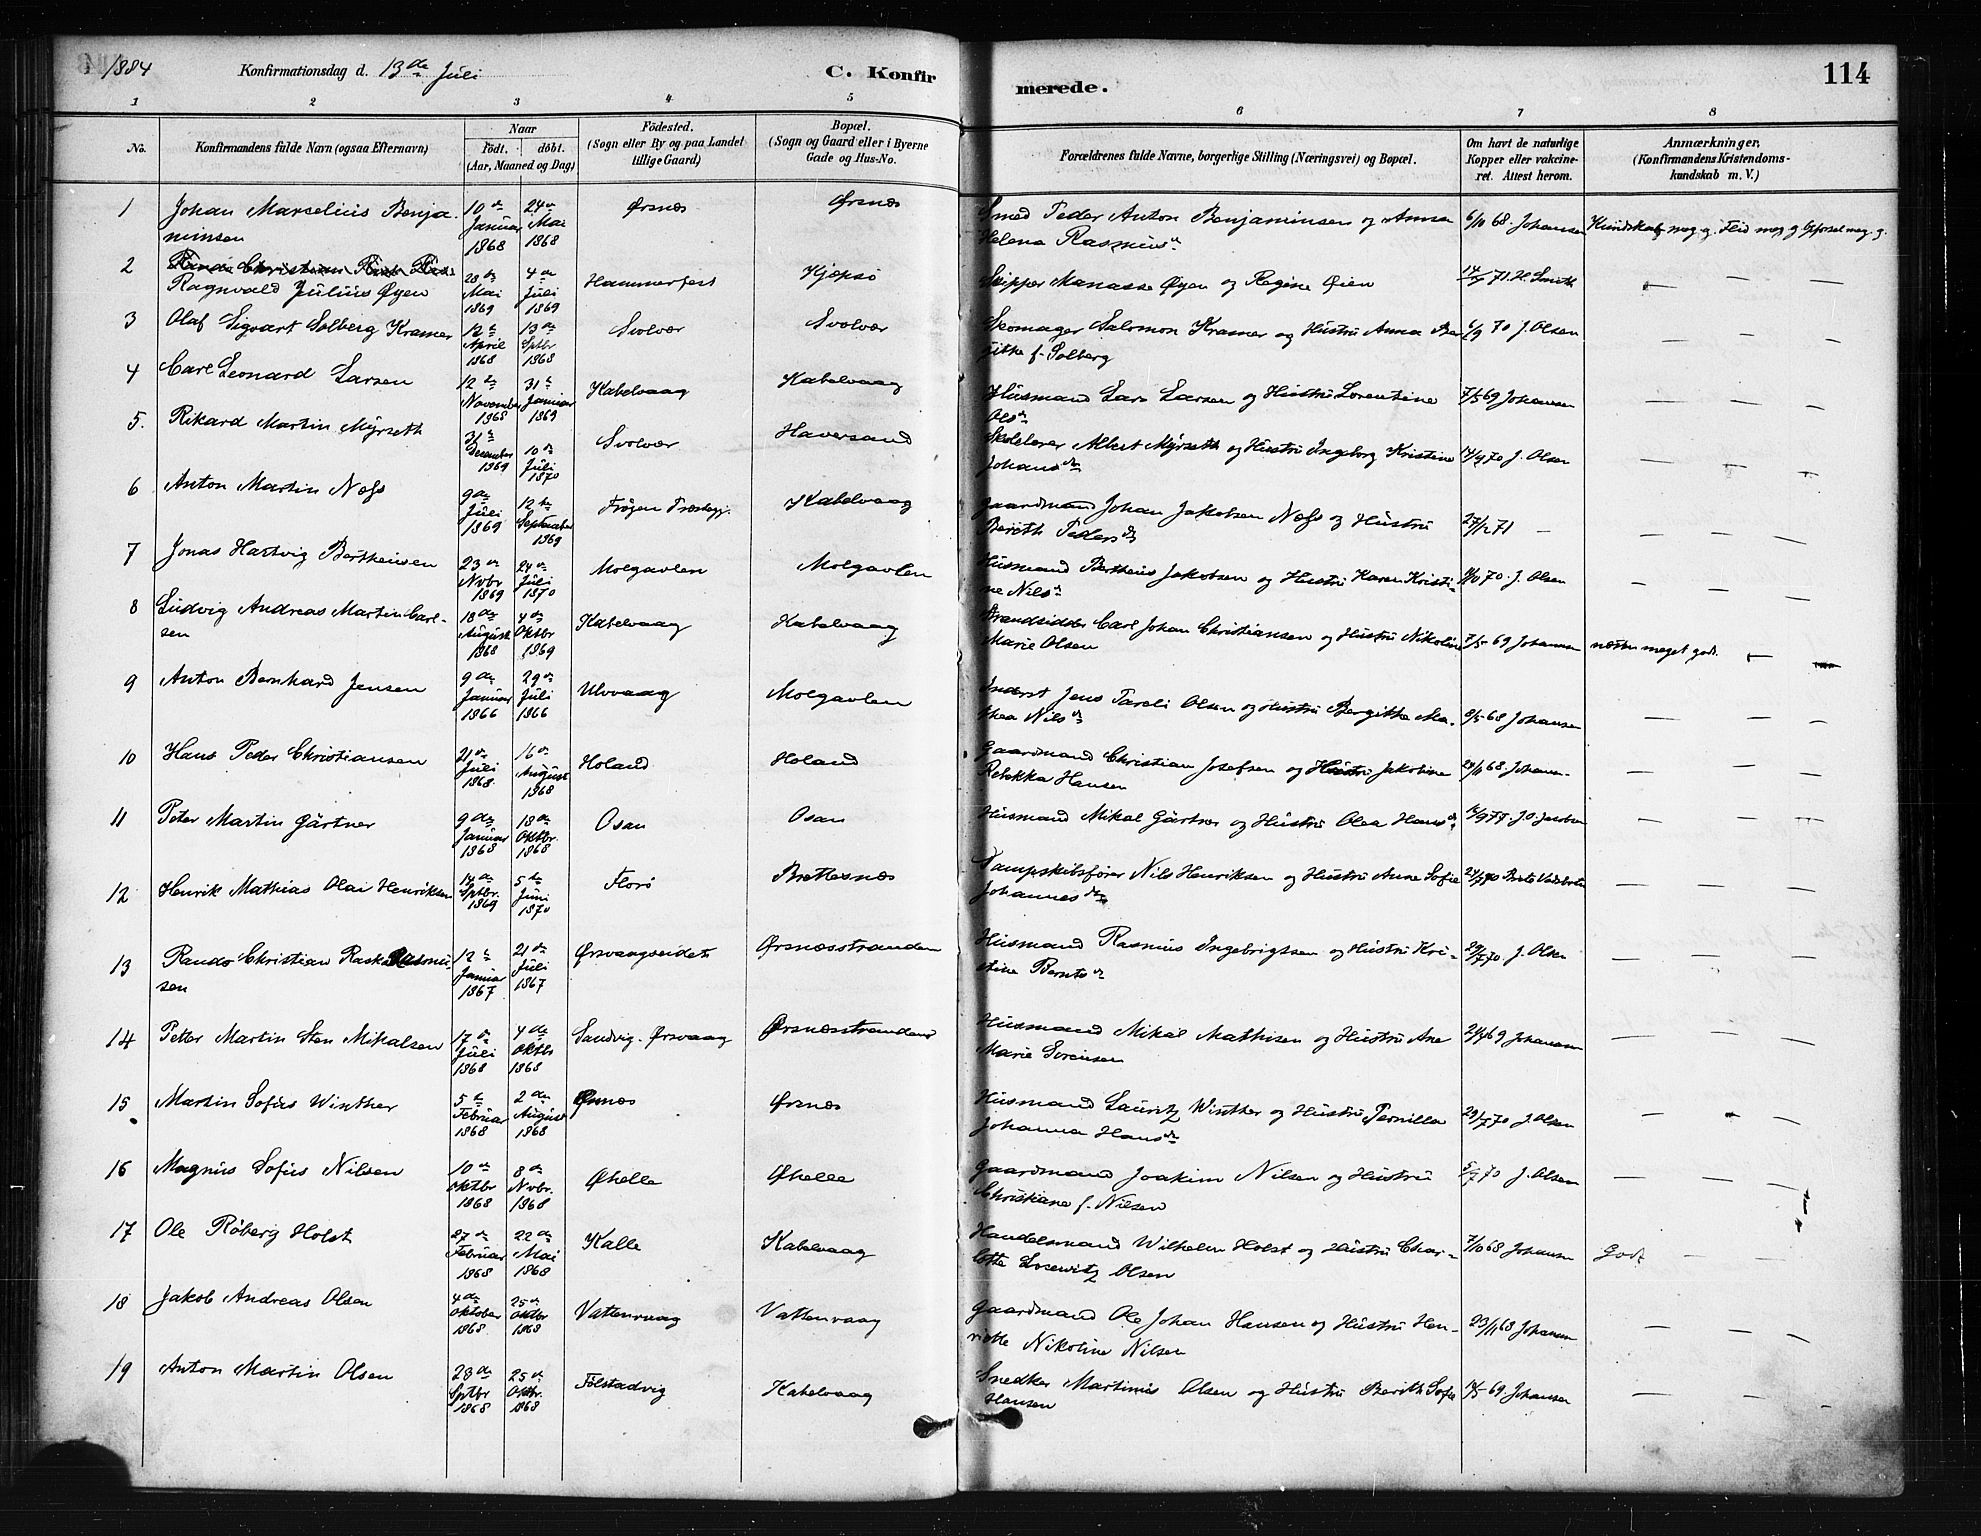 1884 Konfirmationsdag d. 13de Juli C. Konfirmerede. 114
1 2 3 4 5 6 7 8
No. Konfirmandens fulde Navn (ogsaa Efternavn) Naar Födt. döbt. (Aar, Maaned og Dag) Födested. (Sogn eller By og paa Landet tillige Gaard) Bopæl. (Sogn og Gaard eller i Byerne Gade og Hus-No. Forældrenes fulde Navne, borgerlige Stilling (Næringsvei) og Bopæl. Om havt de naturlige Kopper eller vakcineret. Attest herom. Anmærkninger, (Konfirmandens Kristendomskundskab m. V.)
1 Johan Marselius Benjaminsen 10de Januar 1868 24de Mai 1868 Ørsnæs Ørsnæs Smed Peder Anton Benjaminsen og Anna Helena Rasmusd. 6/10 68. Johansen Kundskab meg. g. Flid meg. g. Opførsel meg. g.
2 Ragnvald Julius Øyen 28de Mai 1869 4de Juli 1869 Hammerfest Kjepsø Skipper Manasse Øyen og Regine Øien 71. H. Smith — — —
3 Olaf Sigvart Solberg Kramer 12te April 1868 13de Sptbr 1868 Svolvær Svolvær Skomager Salomon Kramer og Hustru Anna Bergitte f. Solberg 6/9 70 J. Olsen — — —
4 Carl Leonard Larsen 12te November 1868 31te Januar 1869 Kabelvaag Kabelvaag Husmand Lars Larsen og Hustru Lorentine Olsd. 7/5 69 Johansen — — —
5. Rikard Martin Myrseth 31te December 1869 10de Juli 1870 Svolvær Haversand Skolelærer Albert Myrseth og Hustru Ingeborg Kristine Johansd. 70 J. Olsen — — —
6 Anton Martin Næss 9de Juli 1869 12te September 1869 Frøyen Præstegj. Kabelvaag Gaardmand Johan Jakobsen Næss og Hustru Berith Pedersd. 27/12 71 — — — —
7 Jonas Hartvig Bertheusen 23de Novbr 1869 24de Juli 1870 Molgavlen Molgavlen Husmand Bertheus Jakobsen og Hustru Karen Kristine Nilsd. 70. J. Olsen — — —
8 Ludvig Andreas Martin Carlsen 18de August 1868 4de Oktbr 1869 Kabelvaag Kabelvaag Strandsidder Carl Johan Christiansen og Hustru Nikoline Marie Olsen 7/5 69 Johansen næsten meget godt. — —
9 Anton Bernhard Jensen 9de Januar 1866 29de Juli 1866 Ulvvaag Molgavlen Inderst Jens Pareli Olsen og Hustru Bergitte Mathea Nilsd. 8/5 68 Johansen — — —
10 Hans Peder Christiansen 21de Juli 1868. 16de August 1868 Holand Holand Gaardmand Christian Josefsen og Hustru Jakobine Rebekka Hansen 29/11 68. Johansen — — —
11 Peter Martin Gärtner 9de Januar 1868 18de Oktbr. 1868 Osan Osan Husmand Mikal Gärtner og Hustru Olea Hansd. 77. J.O. Jacobsen — — —
12 Henrik Mathias Olai Henriksen 14de Sptbr. 1869 5te Juni 1870 Florø Brettesnæs Dampskibsfører Nils Henriksen og Hustru Anne Sofie Johannesd. — — —
13 Rando Christian Rask Rasmussen 12te Januar 1867 21de Juli 1867 Ørsvaagseidet Ørsnæsstranden Husmand Rasmus Ingebrigtsen og Hustru Kristine Berntsd. 29/7 70 J. Olsen — — —
14 Petter Martin Sten Mikalsen 17de Juli 1868 4de Oktb 1868 Sandvig. Ørsvaag Ørsnæsstranden Husmand Mikal Mathisen og Hustru Ane Marie Sorensen 69 Johansen — — —
15 Martin Sofus Winther 5te Februar 1868 2den August 1868 Ørsnæs Ørsnæs Husmand Lauritz Winther og Hustru Pernilla Johanna Hansd. 29/7 70 J. Olsen — — —
16 Magnus Sofus Nilsen 10de Oktbr 1868 8de Novbr. 1868 Øhelle Øhelle Gaardmand Joakim Nilsen og Hustru Christiane f. Nilsen 5/7 70 J. Olsen — — —
17 Ole Røberg Holst 27de Februar 1868 22de Mai 1868 Kalle Kabelvaag Handelsmand Wilhelm Holst og Hustru Charlotte Losewitz Olsen 7/10 68 Johansen Godt — —
18 Jakob Andreas Olsen 4de Oktober 1868. 25de Oktbr 1868 Vattenvaag Vattenvaag Gaardmand Ole Johan Hansen og Hustru Henriette Nikoline Nilsen 23/11 68 Johansen — — —
19 Anton Martin Olsen 28de Sptbr 1868 25de Oktbr. 1868 Fölstadvig Kabelvaag Snedker Martinus Olsen og Hustru Berith Sofie Hansen 69 Johansen — — —